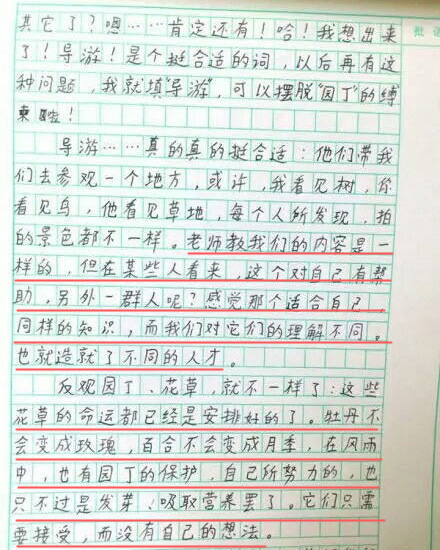 其它了？嗯……肯定还有！哈！我想出来
了！导游！是个挺合适的词，以后再有这
种问题，我就填“导游”，可以摆脱“园丁”的缚
束啦！
导游……真的真的挺合适：他们带我
们去参观一个地方，或许，我看见树，你
看见鸟，他看见草地，每个人所发现，拍
的景色都不一样。老师教我们的内容是一
样的，但在某些人看来，这个对自己有帮
助，另外一群人呢？感觉那个适合自己，
同样的知识，而我们对它们的理解不同。
也就造就了不同的人才。
反观园丁、花草，就不一样了：这些
花草的命运都已经是安排好的了。牡丹不
会变成玫瑰，百合不会变成月季，在风雨
中，也有园丁的保护，自己所努力的，也
只不过是发芽、吸取营养罢了。它们只需
要接受，而没有自己的想法。
批语